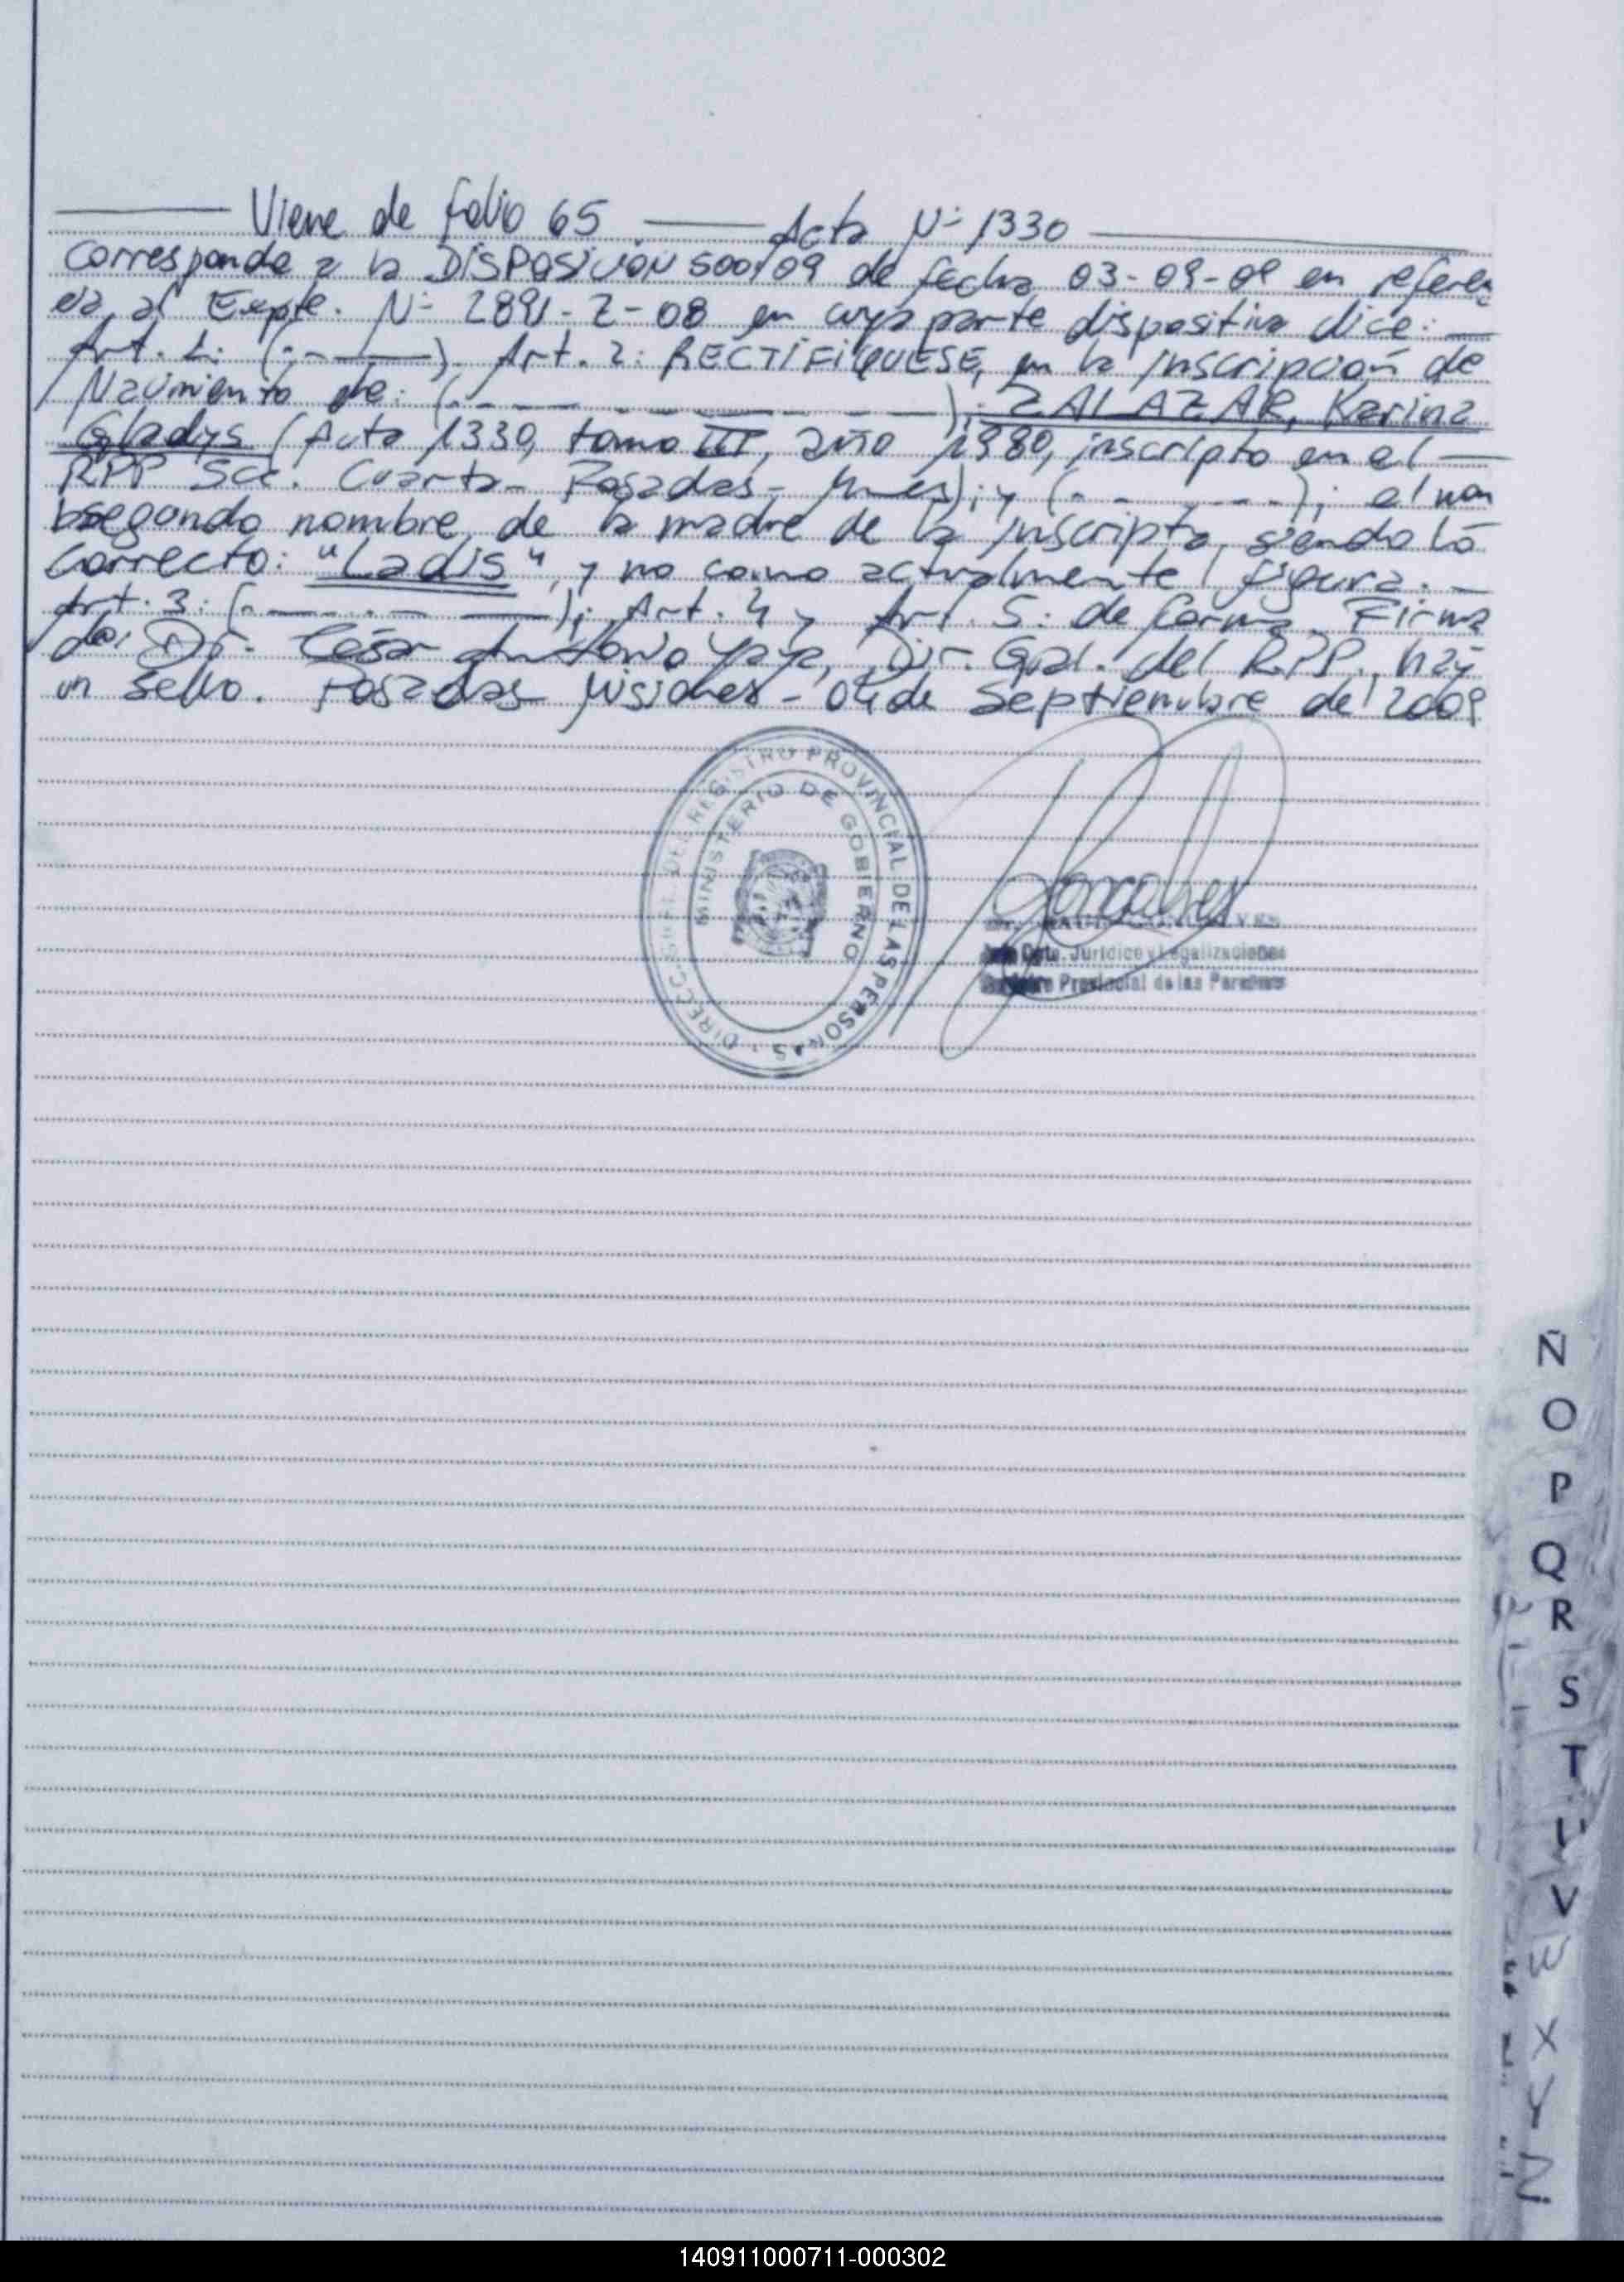 Viene de folio 65 Acta N- 1330
Corresponde a la DISPOSICION 500/09 de fecha 03-09-09 en referen
cia al Expte. N- 2891-Z-08 en cuya parte dispositiva dice:
Art. 1: (.- ). Art. 2: RECTIFIQUESE, en la inscripción de
Nacimiento de: (.- - - - -); ZALAZAR, Karina
Gladys (Acta 1330, tomo III, año 1980, inscripto en el
RPP Scc. Cuarta- Posadas- Mnes); y (.- - - -); el
segundo nombre de la madre de la inscripta, siendo lo
correcto: "Ladis", y no como actualmente figura.
Art. 3: (.- - -); Art. 4 y Art. 5: de forma. Firma
do: Dr. César Antonio Yaya, Dir. Gral. del R.P.P., hay
un sello. Posadas Misiones- 04 de Septiembre de 2009
DIRECC. GRAL. DEL REGISTRO PROVINCIAL DE LAS PERSONAS
MINISTERIO DE GOBIERNO
Dpto. Jurídico y Legalizaciones
Provincial de las Personas
Ñ
O
P
Q
R
S
T
U
V
W
X
Y
Z
140911000711-000302